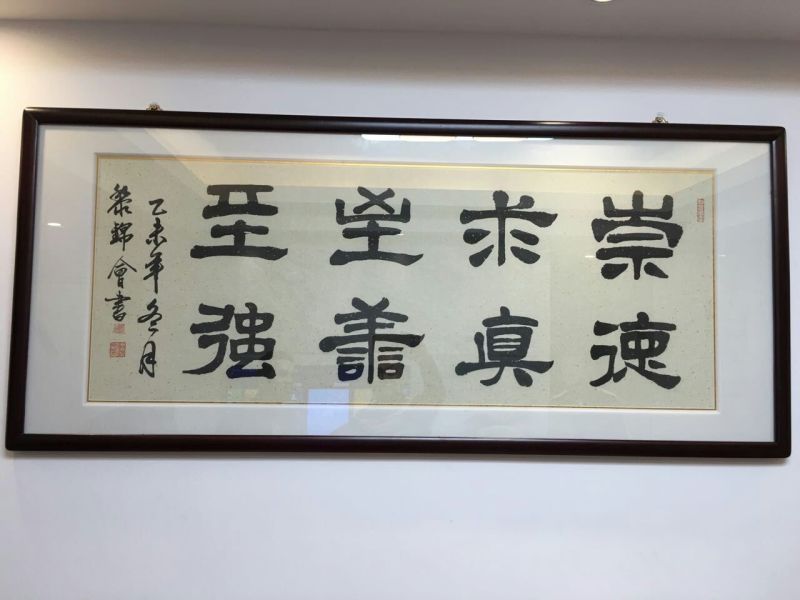 崇德
求真
至善
至强
乙未年冬月
錦會書